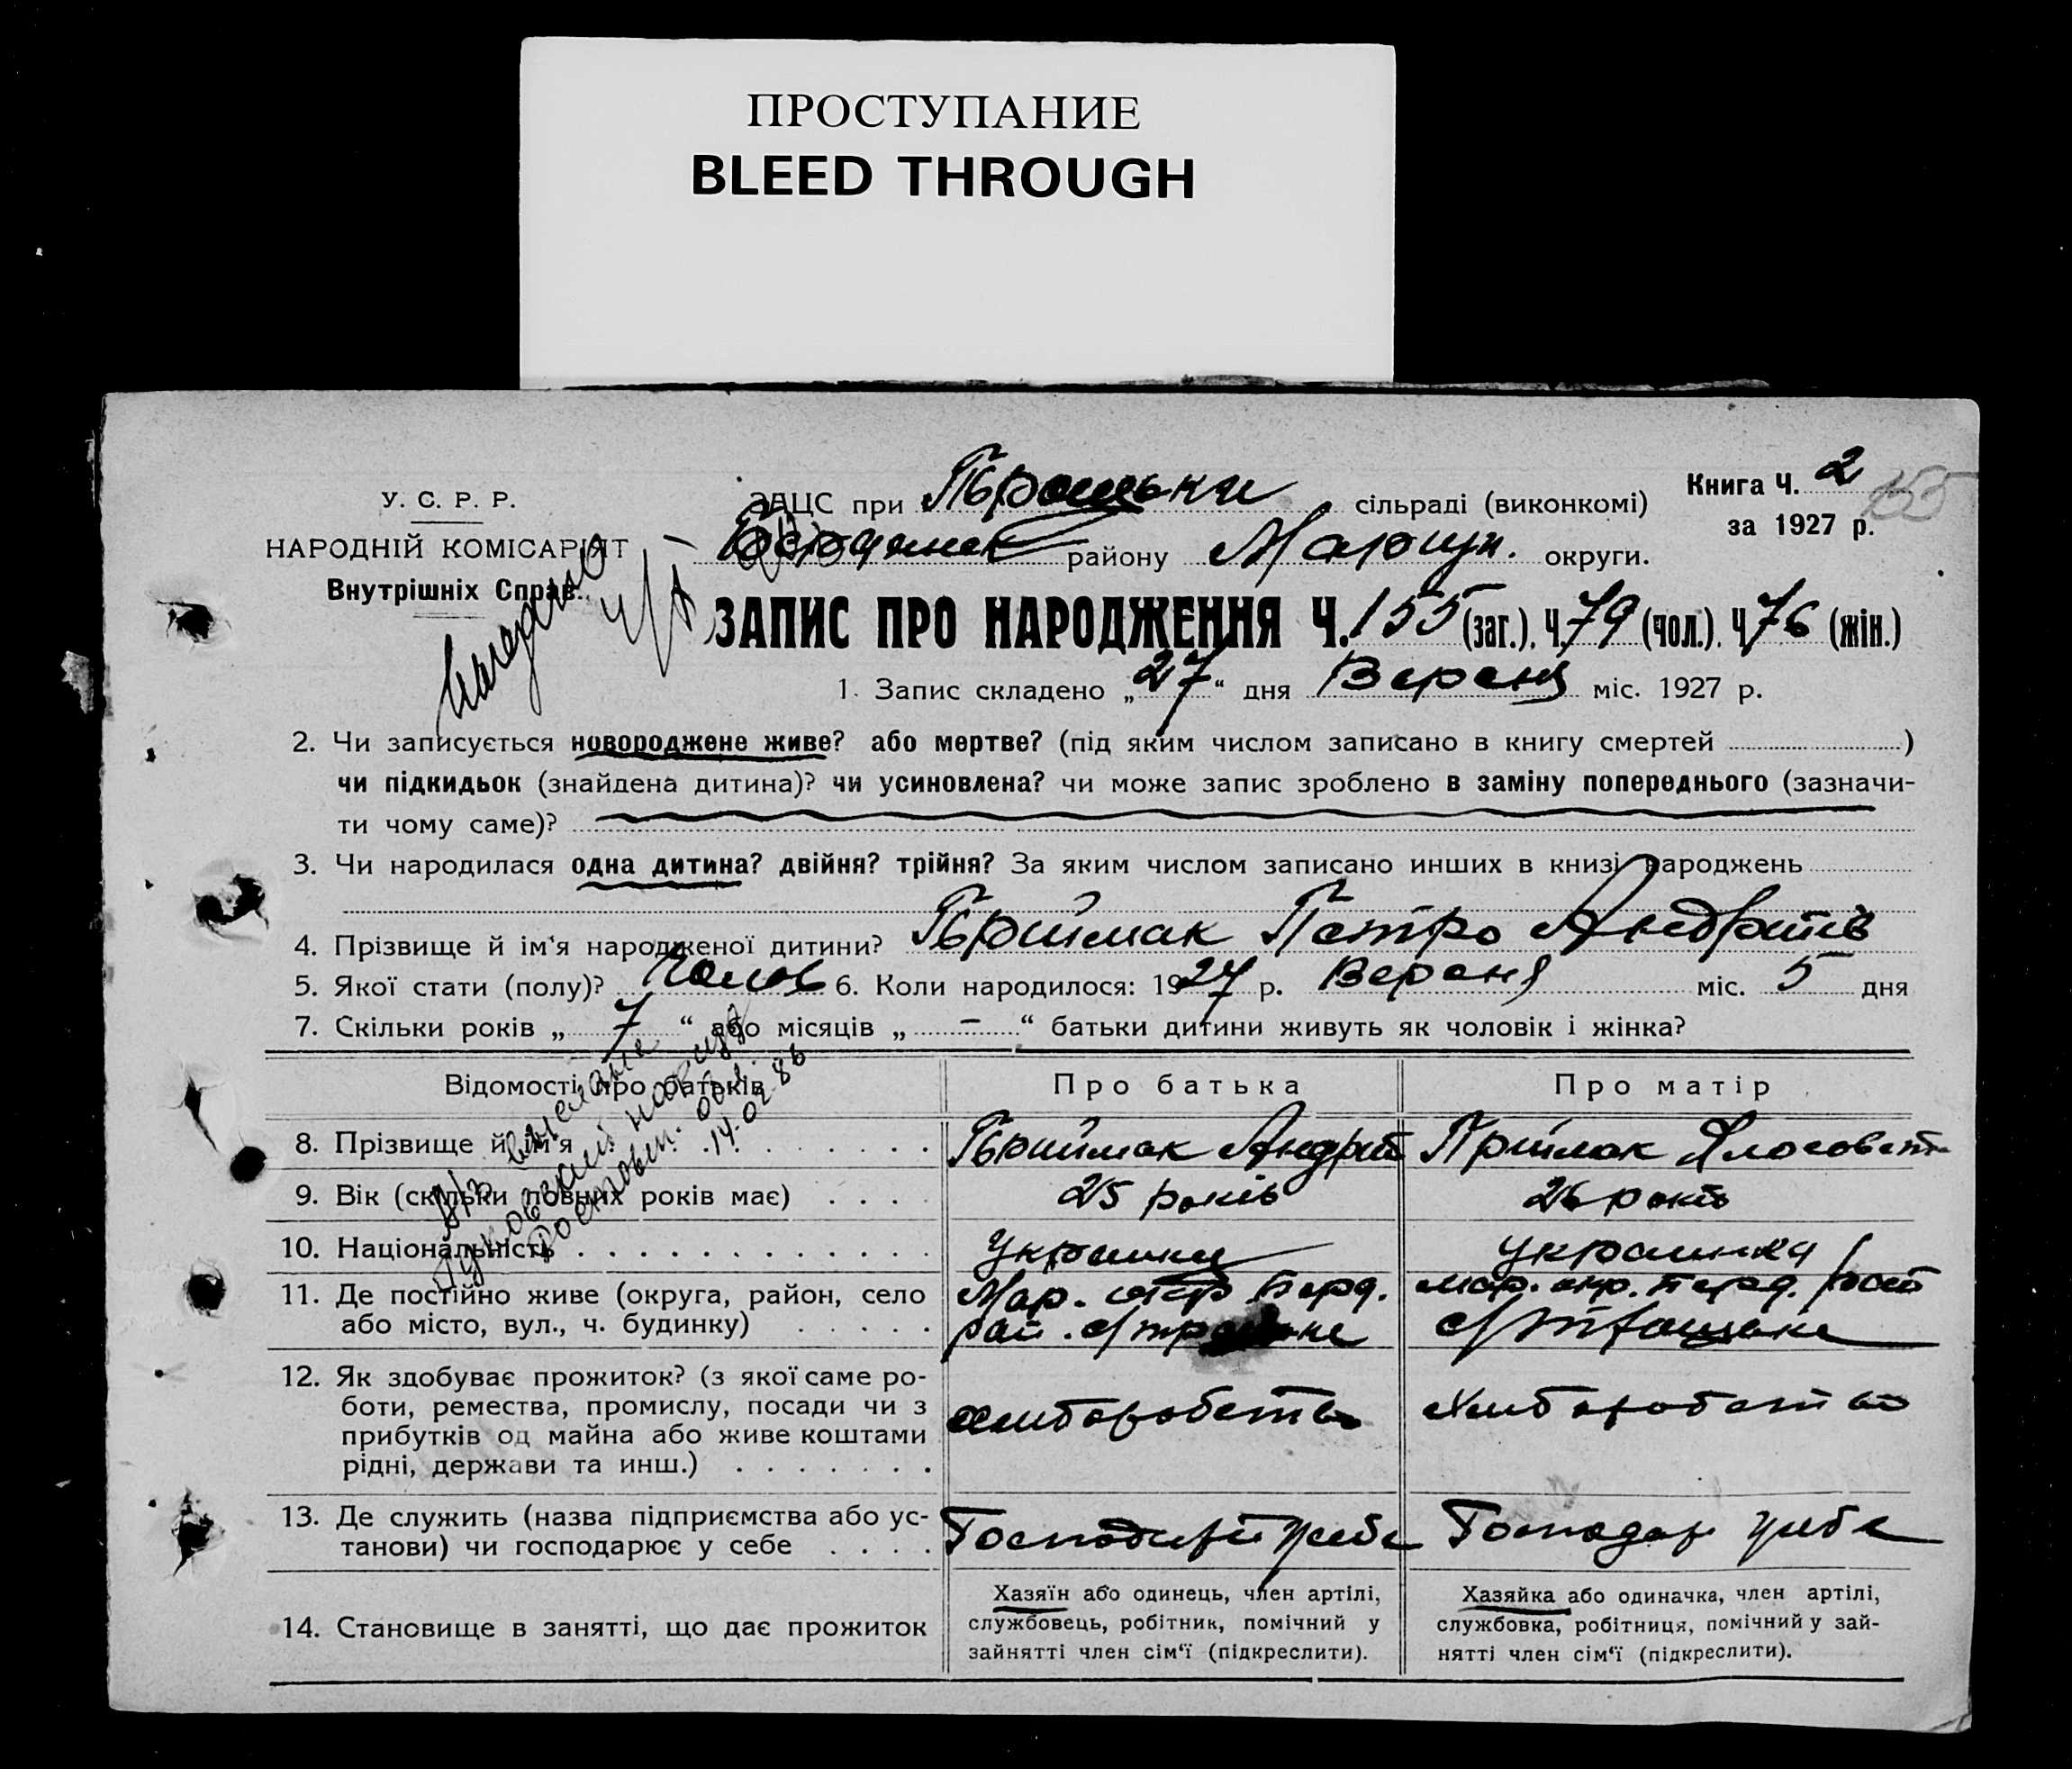 ПРОСТУПАНИЕ
BLEED THROUGH
У. С. Р. Р.
НАРОДНІЙ КОМІСАРІЯТ
Внутрішніх Справ.
ЗАЦС при сільраді (виконкомі)
району Маріуп. округи.
Книга Ч. 2
155
за 1927 р.
ЗАПИС ПРО НАРОДЖЕННЯ Ч. 155 (заг.), Ч. 79 (чол.), Ч. 76 (жін.)
1. Запис складено „ 27 “ дня Вересня міс. 1927 р.
2. Чи записується новороджене живе? або мертве? (під яким числом записано в книгу смертей )
чи підкидьок (знайдена дитина)? чи усиновлена? чи може запис зроблено в заміну попереднього (зазначи-
ти чому саме)?
3. Чи народилася одна дитина? двійня? трійня? За яким числом записано инших в книзі народжень
4. Прізвище й ім‘я народженої дитини? Приймак Петро Андріїв
5. Якої стати (полу)? Чолов 6. Коли народилося: 1927 р. Вересня міс. 5 дня
7. Скільки років „ 7 “ або місяців „ – “ батьки дитини живуть як чоловік і жінка?
Відомості про батьків
Про батька
Про матір
8. Прізвище й ім‘я
Приймак Андрій
Приймак
9. Вік (скільки повних років має)
25 років
26 років
10. Національність
Українка
11. Де постійно живе (округа, район, село
або місто, вул., ч. будинку)
Мар. окр.
рай.
мар. окр. рай
12. Як здобуває прожиток? (з якої саме ро-
боти, ремества, промислу, посади чи з
прибутків од майна або живе коштами
рідні, держави та инш.)
хлиборобство
хлиборобство
13. Де служить (назва підприємства або ус-
танови) чи господарює у себе
у себе
Господар у себе
14. Становище в занятті, що дає прожиток
Хазяїн або одинець, член артілі,
службовець, робітник, помічний у
зайнятті член сім‘ї (підкреслити).
Хазяйка або одиначка, член артілі,
службовка, робітниця, помічний у зай-
нятті член сім‘ї (підкреслити).
14.02.86